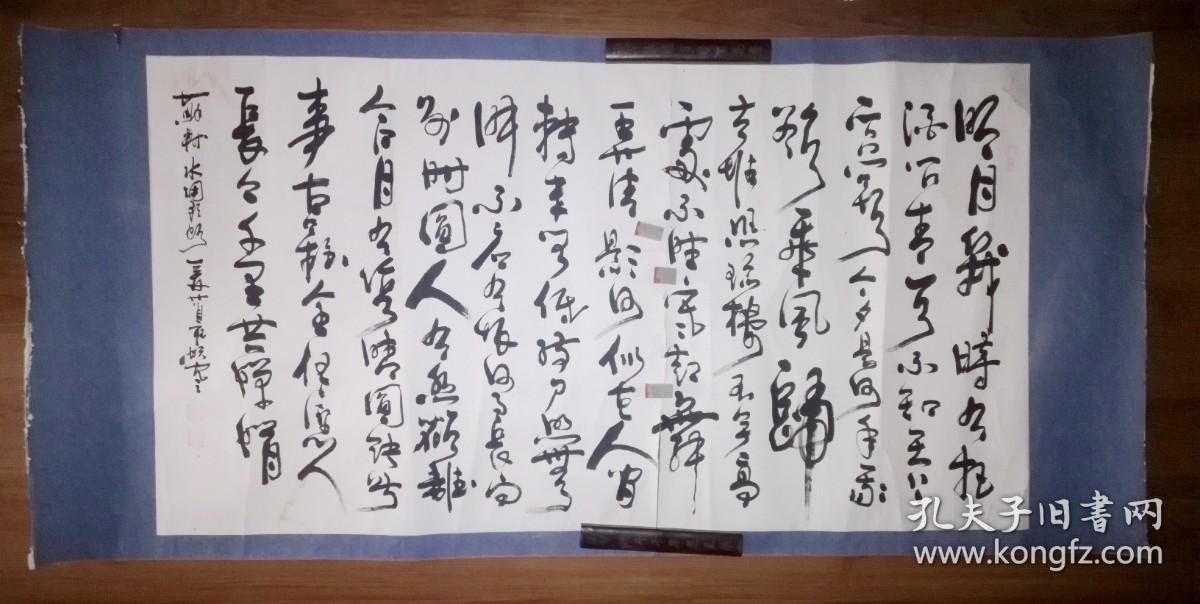 明月幾時有把
酒問青天不知天上
宮闕今夕是何年我
欲乘風歸
去惟恐瓊樓玉宇高
處不勝寒起舞
弄清影何似在人間
轉朱閣低綺戶照無
眠不應有恨何事長向
別時圓人有悲歡離
合月有陰晴圓缺此
事古難全但願人
長久千里共嬋娟
蘇軾水調歌頭
孔夫子旧書网
www.kongfz.com